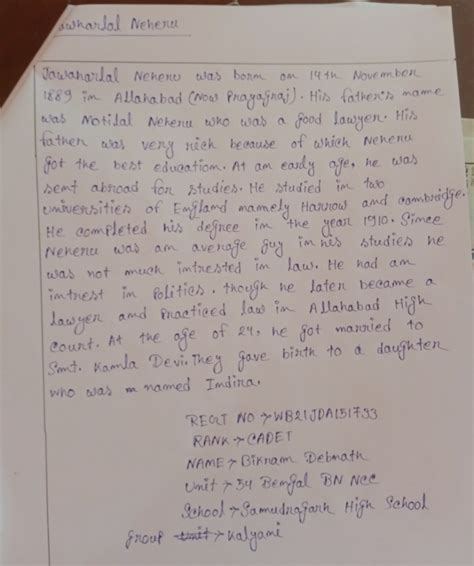 Jawaharlal Neheru
Jawaharlal Neheru was born on 14th November
1889 in Allahabad (Now Prayagraj). His father's name
was Motilal Neheru who was a good lawyer. His
father was very rich because of which Neheru
got the best education. At an early age, he was
sent abroad for studies. He studied in two
universities of England namely Harrow and cambridge.
He completed his degree in the year 1910. Since
Neheru was an average guy in his studies he
was not much intrested in law. He had an
intrest in Politics. though he later became a
lawyer and Practiced law in Allahabad High
court. At the age of 24, he got married to
Smt. Kamla Devi. They gave birth to a daughter
who was named Indira.
REGT NO → WB21JDA151733
RANK → CADET
NAME → Bikram Debnath
Unit → 54 Bengal BN NCC
School → Samudragarh High School
Group → Kalyani